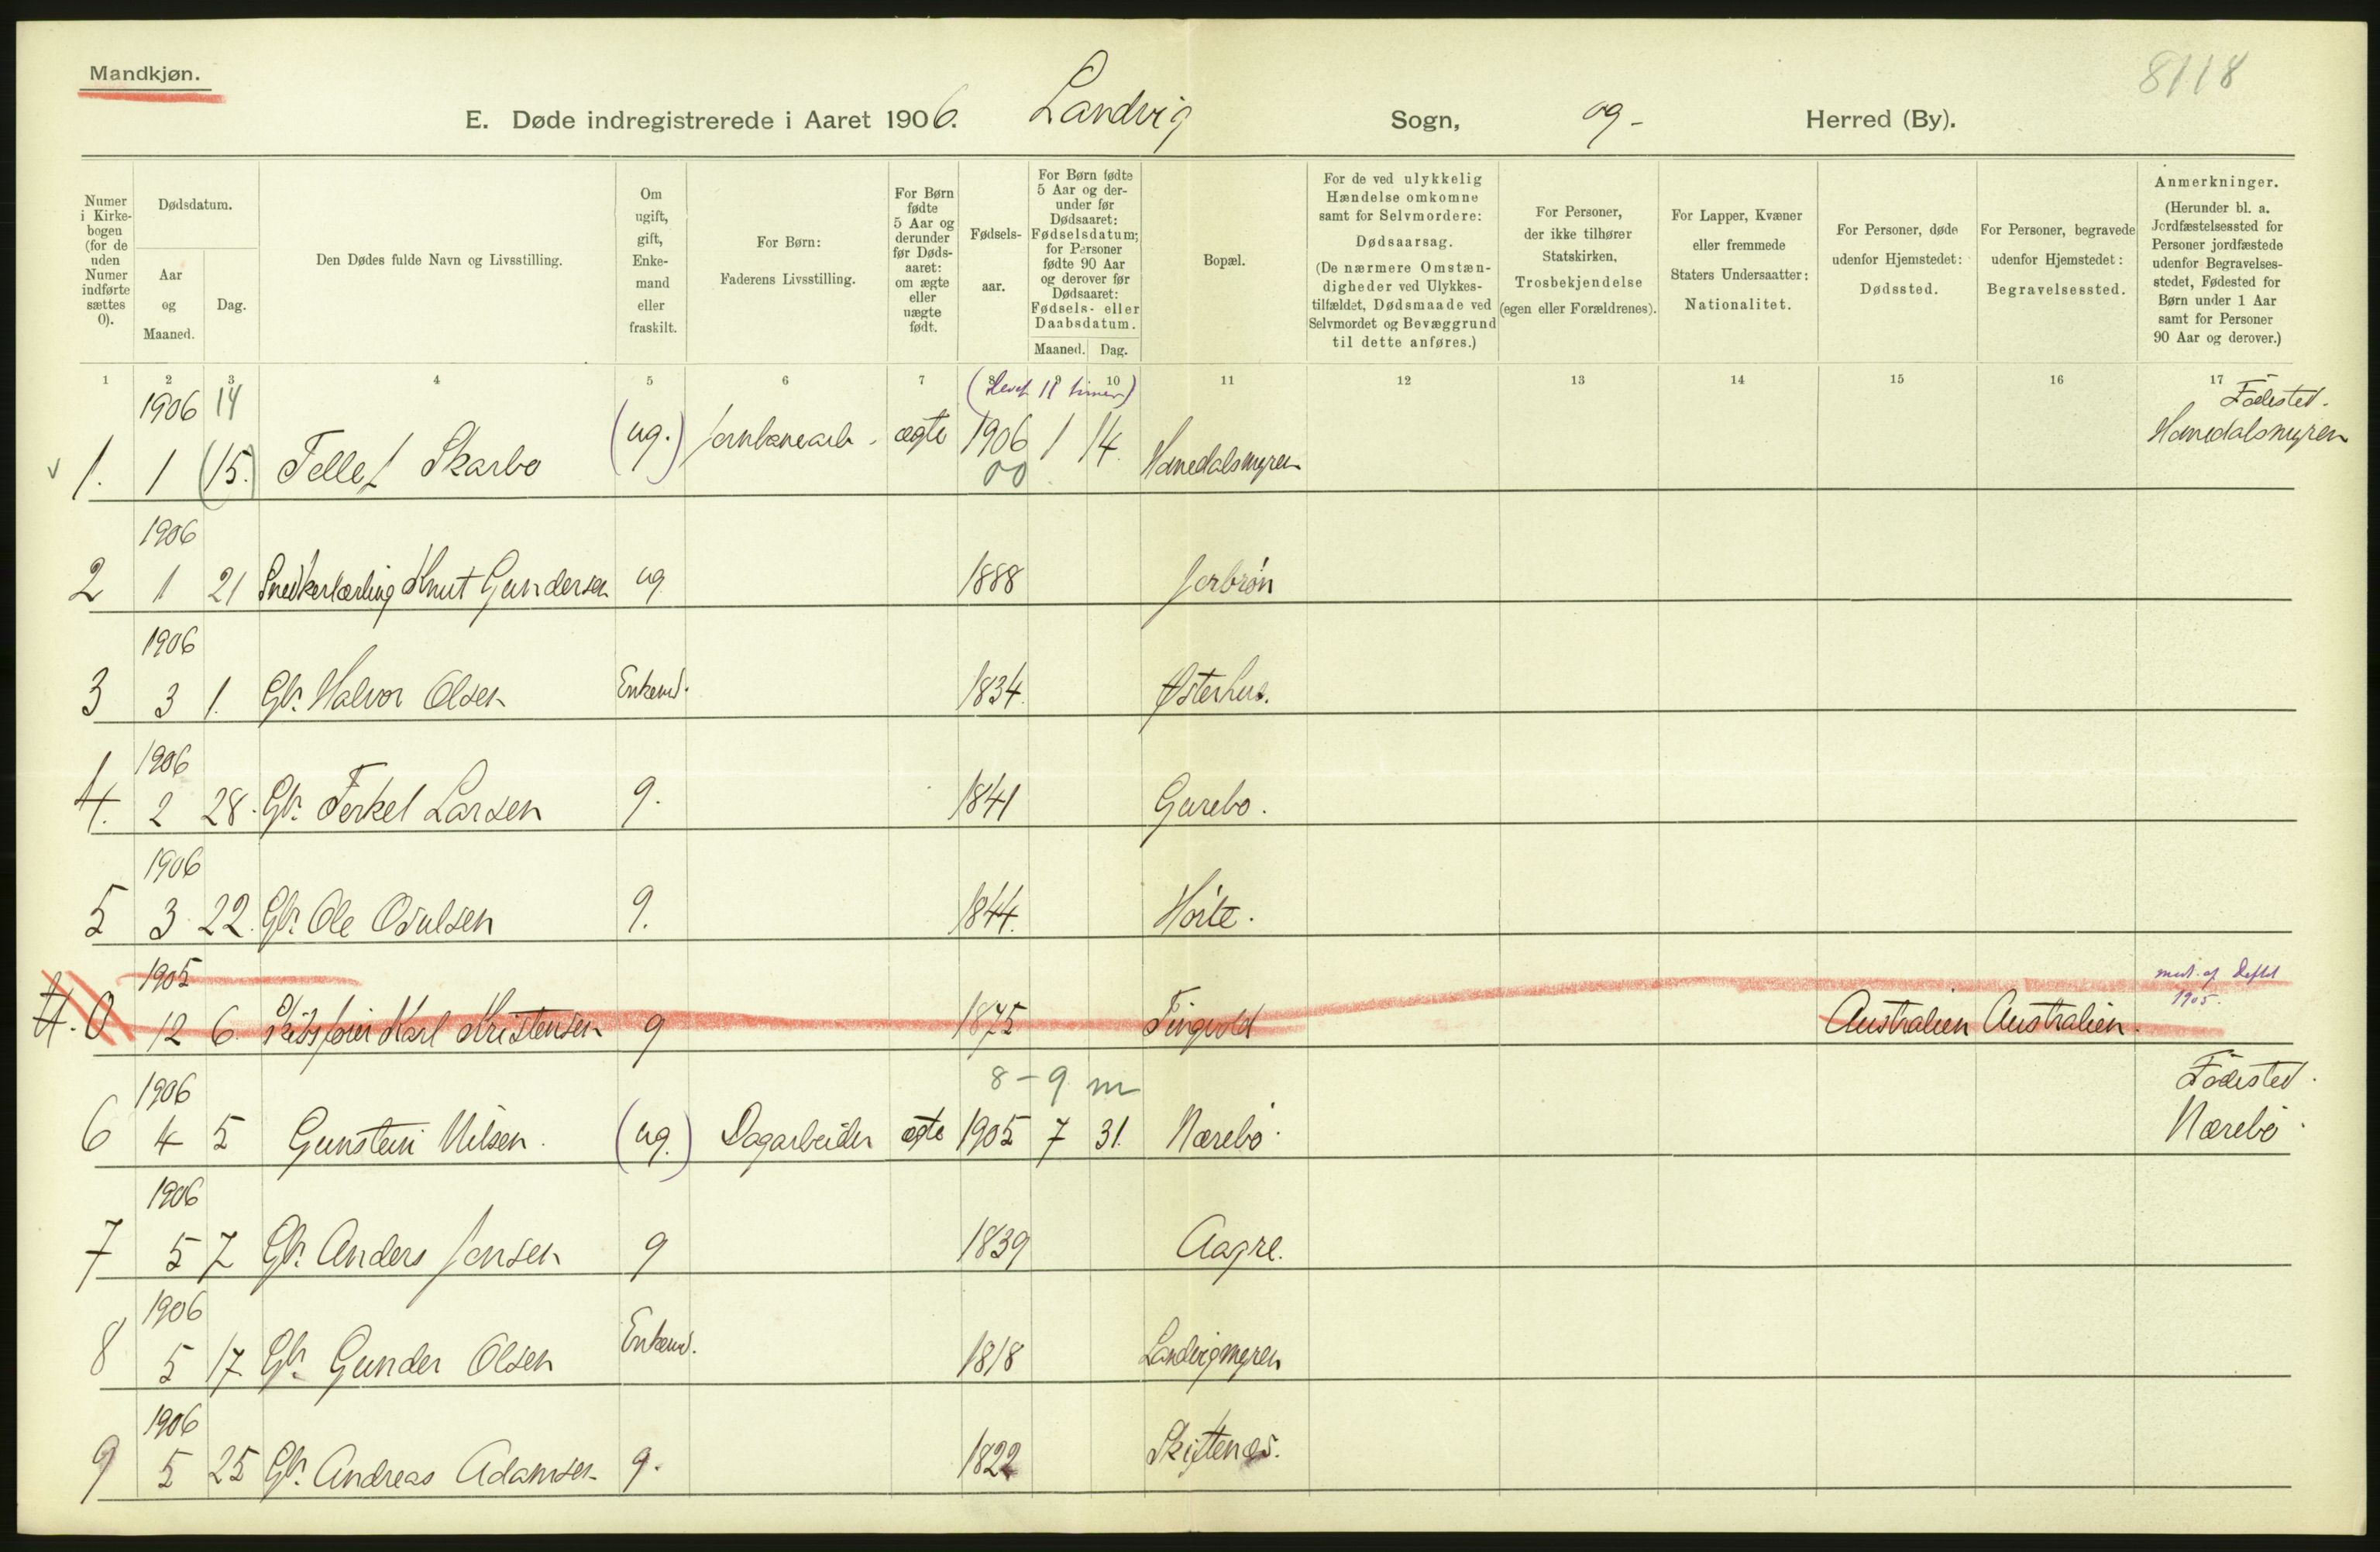 Mandkjøn.
8118
E. Døde indregistrerede i Aaret 1906. Landvig Sogn, og - Herred (By).
Numer i Kirkebogen (for de uden Numer indførte sættes 0).
Dødsdatum.
Aar og Maaned.
Dag.
Den Dødes fulde Navn og Livsstilling.
Om ugift, gift, Enkemand eller fraskilt.
For Børn: Faderens Livsstilling.
For Børn fødte 5 Aar og derunder før Dødsaaret: om ægte eller uægte født.
Fødselsaar.
For Børn fødte 5 Aar og derunder før Dødsaaret: Fødselsdatum; for Personer fødte 90 Aar og derover før Dødsaaret: Fødsels- eller Daabsdatum.
Maaned. Dag.
Bopæl.
For de ved ulykkelig Hændelse omkomne samt for Selvmordere: Dødsaarsag. (De nærmere Omstændigheder ved Ulykkestilfældet, Dødsmaade ved Selvmordet og Bevæggrund til dette anføres.)
For Personer, der ikke tilhører Statskirken, Trosbekjendelse (egen eller Forældrenes).
For Lapper, Kvæner eller fremmede Staters Undersaatter: Nationalitet.
For Personer, døde udenfor Hjemstedet: Dødssted.
For Personer, begravede udenfor Hjemstedet: Begravelsessted.
Anmerkninger. (Herunder bl. a. Jordfæstelsessted for Personer jordfæstede udenfor Begravelsesstedet, Fødested for Børn under 1 Aar samt for Personer 90 Aar og derover.)
1 2 3 4 5 6 7 8 9 10 11 12 13 14 15 16 17
1906 14 (Levet 11 timer) Fødested.
1. 1 (15.) Tellef Skarbo (ug.) Jernbanearb. ægte 1906 1 14 Hanedalsmyren Hanedalsmyren
00
1906
2 1 21 Snedkerlærling Knut Gundersen ug 1888
1906
3 3 1. Gbr. Halvor Olsen Enkemd. 1834. Østerhus.
1906
4. 2 28. Gbr. Terkel Larsen g. 1841 Garebo.
1906
5 3 22. Gbr. Ole Osulsen g. 1844.
1905 1905.
0 12 6 Skibsfører Karl Kristensen g 1875 Tingvold Australien Australien.
1906 8-9 m Fødested.
6 4 5 Gunstein Nilsen. (ug.) Dagarbeider ægte 1905 7 31. Nærebø. Nærebø.
1906
7 5 7 Gbr. Anders Jensen g 1839 Aagre.
1906
8 5 17 Gbr. Gunder Olsen Enkemd. 1818 Landvigmyren
1906
9 5 25 Gbr. Andreas Adamsen g. 1822 Skiftenes.